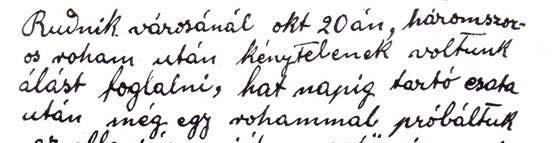 Rudnik városánál okt 20án, háromszor-
os roham után kénytelenek voltunk
álást foglalni, hat napig tartó csata
után még egy rohammal próbáltuk
az